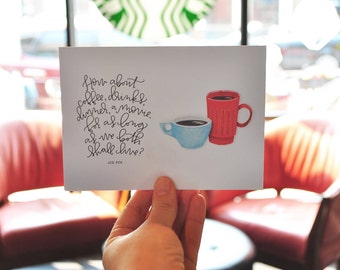 How about
coffee, drinks,
dinner, a movie,
for as long
as we both
shall live?
JOE FOX